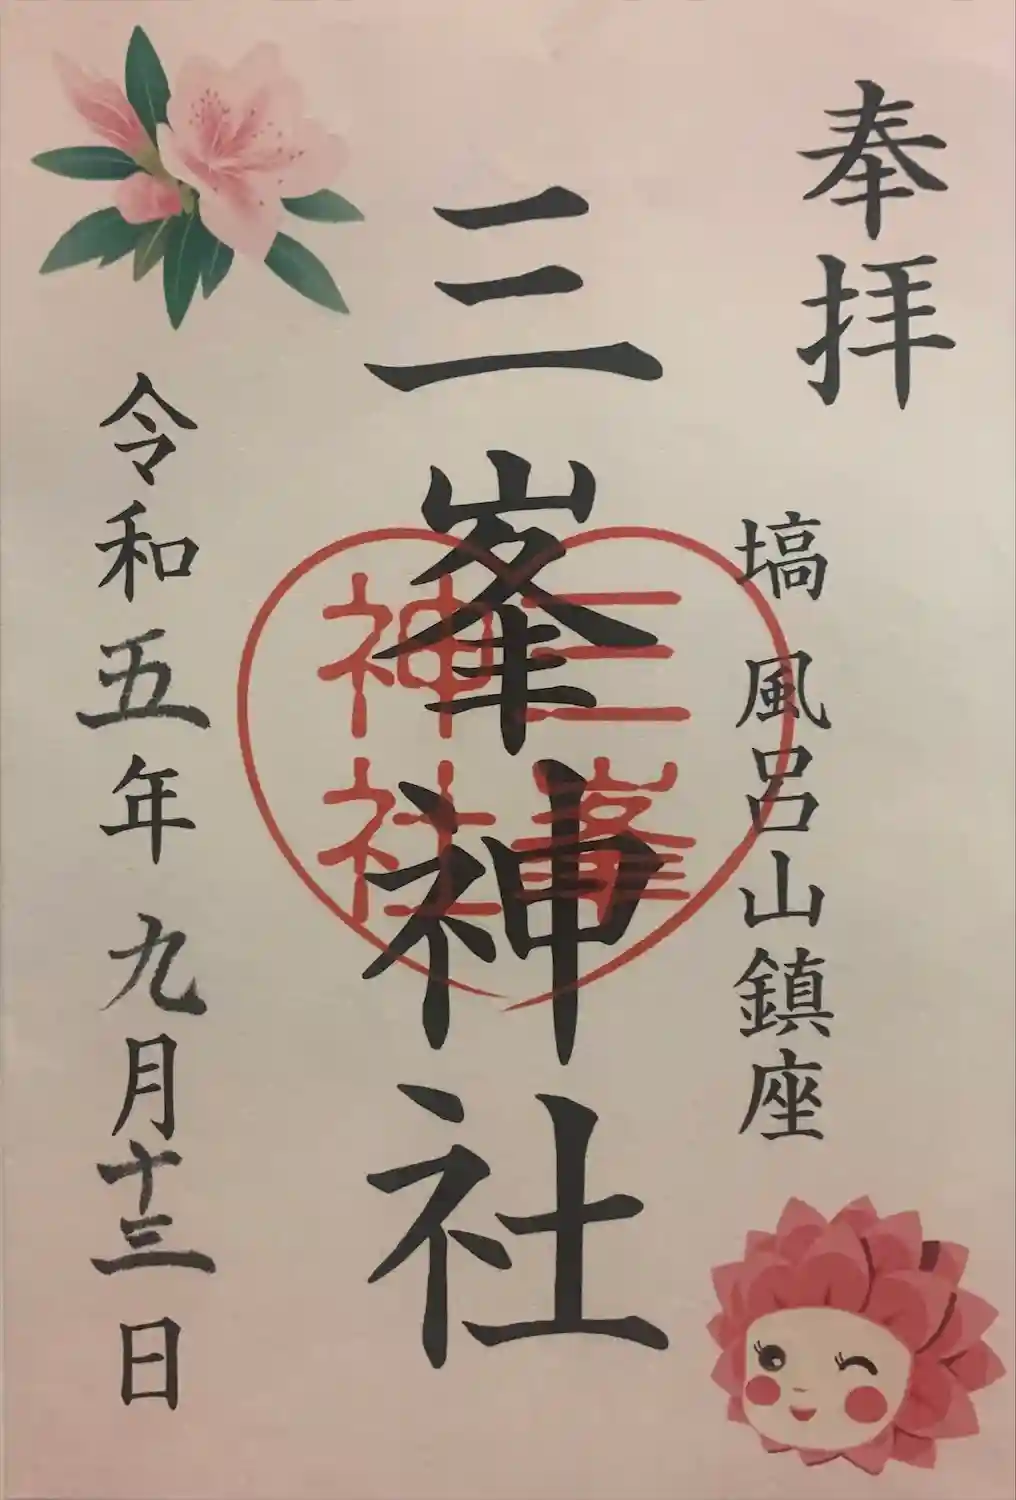 奉拝
塙 風呂山鎮座
三峯神社
三峯
神社
令和五年九月十三日